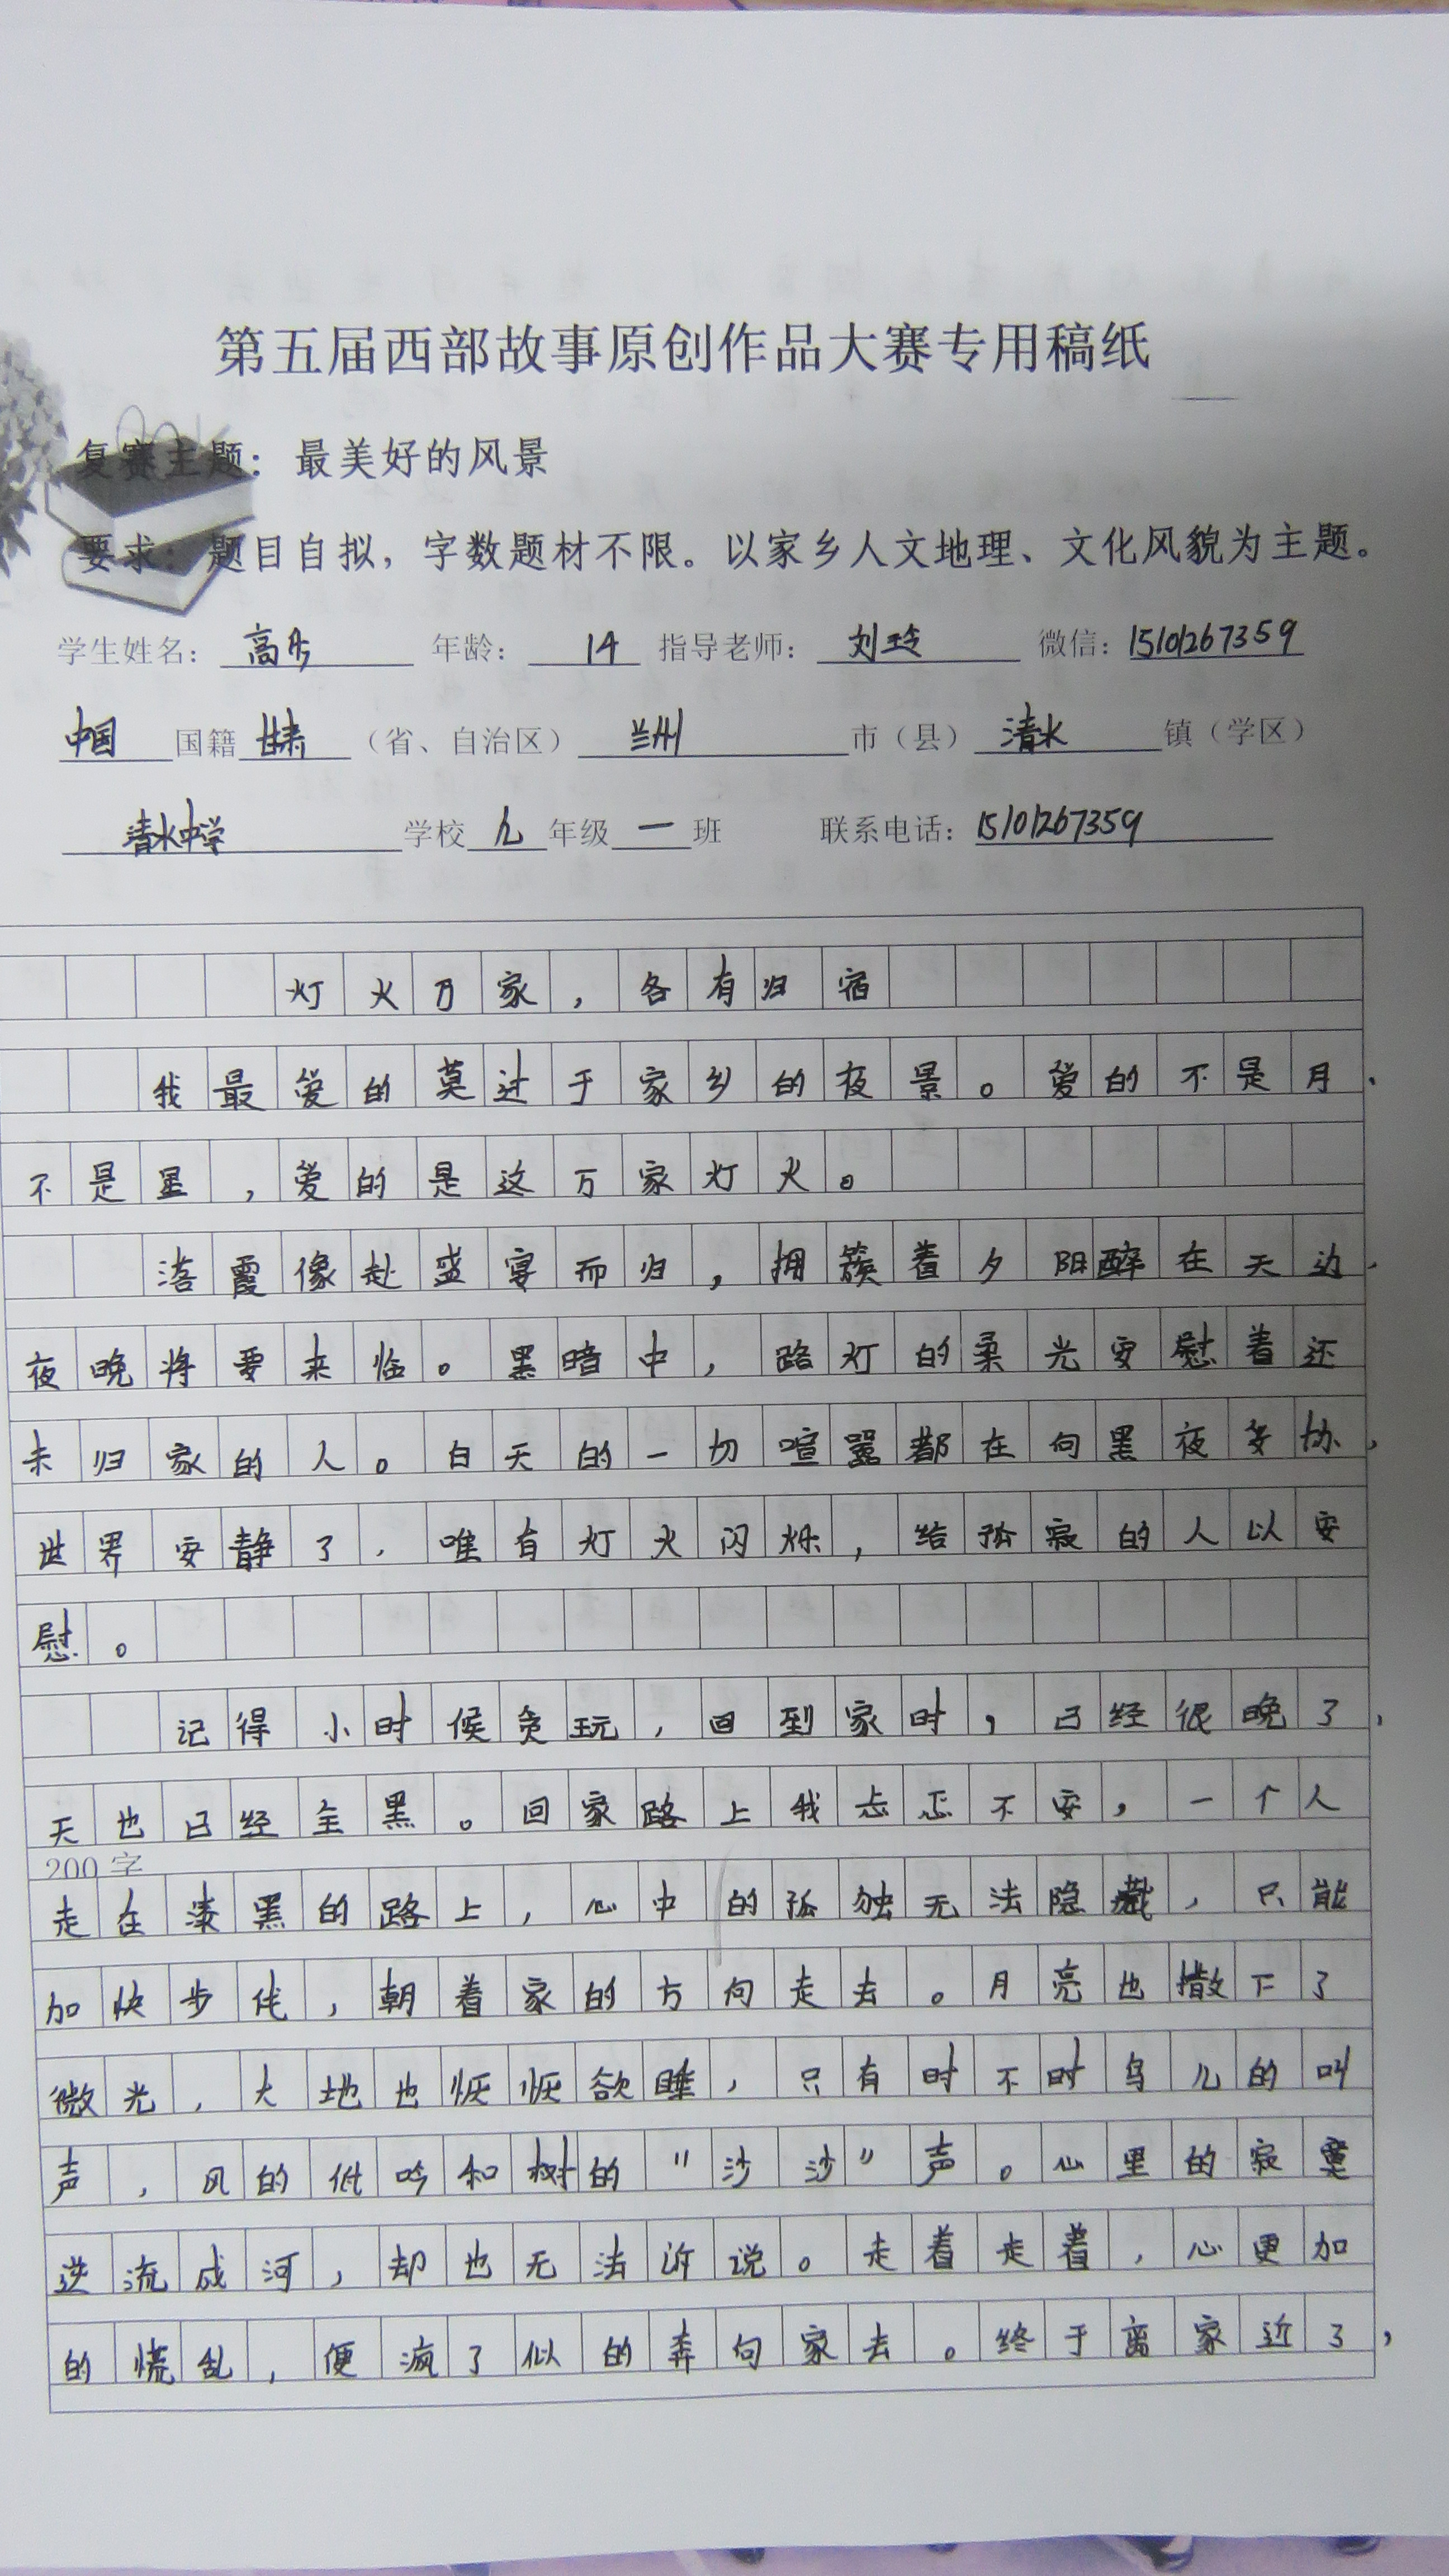 第五届西部故事原创作品大赛专用稿纸
复赛主题：最美好的风景
要求：题目自拟，字数题材不限。以家乡人文地理、文化风貌为主题。
学生姓名：高 年龄：14 指导老师：刘玲 微信：15101267359
中国国籍甘肃（省、自治区）兰州市（县）清水镇（学区）
清水中学学校九年级一班 联系电话：15101267359
灯火万家，各有归宿
我最爱的莫过于家乡的夜景。爱的不是月、
不是星，爱的是这万家灯火。
落霞像赴盛宴而归，拥簇着夕阳醉在天边，
夜晚将要来临。黑暗中，路灯的柔光安慰着还
未归家的人。白天的一切喧嚣都在向黑夜妥协，
世界安静了，唯有灯火闪烁，给孤寂的人以安
慰。
记得小时候贪玩，回到家时，已经很晚了，
天也已经全黑。回家路上我忐忑不安，一个人
200字
走在漆黑的路上，心中的孤独无法隐藏，只能
加快步伐，朝着家的方向走去。月亮也撒下了
微光，大地也恹恹欲睡，只有时不时鸟儿的叫
声，风的低吟和树的“沙沙”声。心里的寂寞
逆流成河，却也无法诉说。走着走着，心更加
的慌乱，便疯了似的奔向家去。终于离家近了，